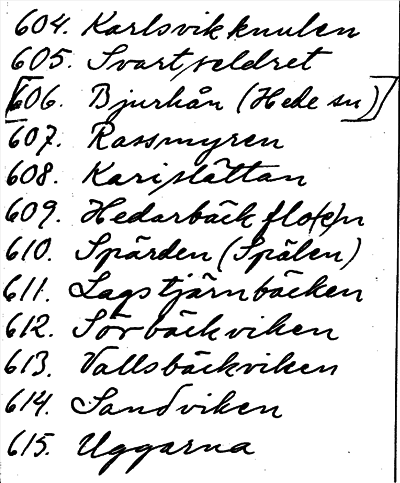 604. Karlsvikknulen
605. Svartseldret
[606. Bjurhån (Hede sn)]
607. Rassmyren
608. Karislåttan
609. Hedarbäckflo(e)n
610. Spärden (Spälen)
611. Lagstjärnbäcken
612. Sörbäckviken
613. Vallsbäckviken
614. Sandviken
615. Uggarna